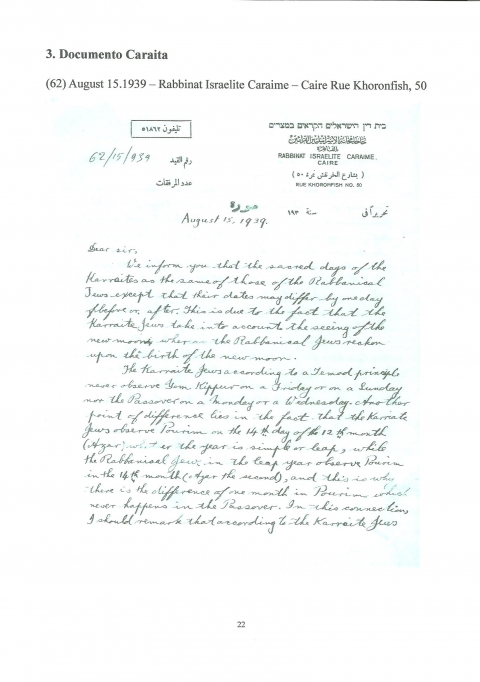 3. Documento Caraita
(62) August 15.1939 – Rabbinat Israelite Caraime – Caire Rue Khoronfish, 50
تليفون ٥١٨٦٢
בית דין הישראלים הקראים במצרים
62/15/939
رقم القيد
RABBINAT ISRAELITE CARAIME.
CAIRE
عدد المرفقات
( بشارع الخرنفش نمرة ٥٠ )
RUE KHORONFISH NO. 50
صورة
سنة ١٩٣
August 15, 1939.
Dear sir,
We inform you that the sacred days of the
Karraites as the same of those of the Rabbanical
Jews except that their dates may differ by one day
before or after. This is due to the fact that the
Karraite Jews take into account the seeing of the
new moon, wher as the Rabbanical Jews reckon
upon the birth of the new moon.
The Karraite Jews according to a principle
never observe Yom Kippur on a Friday or on a Sunday
nor the Passover on a Monday or a Wednesday. Another
point of difference lies in the fact that the Karriate
Jews observe Pourim on the 14th day of the 12th month
(Azar) the year is simple or leap, while
the Rabbanical Jews in the leap year observe Pourim
in the 14th month (Azar the second), and this is why
there is the difference of one month in Pourim which
never happens in the Passover. In this connection
I should remark that according to the Karraite Jews
22